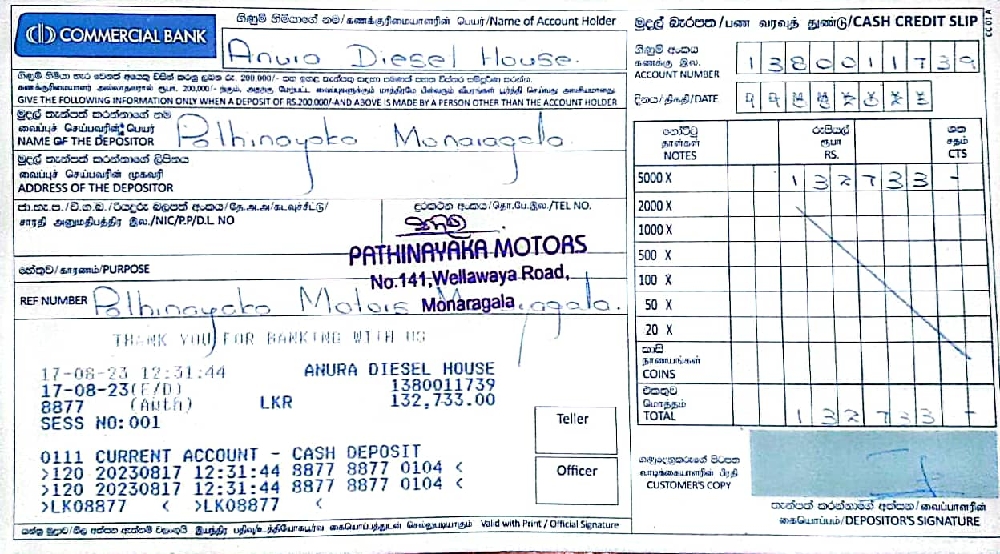 COMMERCIAL BANK
ගිණුම් හිමියාගේ නම/கணக்குரிமையாளரின் பெயர்/Name of Account Holder
Anura Diesel House.
GIVE THE FOLLOWING INFORMATION ONLY WHEN A DEPOSIT OF RS.200000/-AND ABOVE IS MADE BY A PERSON OTHER THAN THE ACCOUNT HOLDER
මුදල් තැන්පත් කරන්නාගේ නම
வைப்புச் செய்பவரின் பெயர்
NAME OF THE DEPOSITOR Pathinayaka Monaragala.
මුදල් තැන්පත් කරන්නාගේ ලිපිනය
வைப்புச் செய்பவரின் முகவரி
ADDRESS OF THE DEPOSITOR
சாரதி அனுமதிப்பத்திர இல./NIC/P.P/D.L. NO
දුරකථන අංකය/தொ.பே.இல./TEL NO.
PATHINAYAKA MOTORS
No.141,Wellawaya Road,
Monaragala
හේතුව/காரணம்/PURPOSE
REF NUMBER Pathinayaka Motors Monaragala.
THANK YOU FOR BANKING WITH US
17-08-23 12:31:44 ANURA DIESEL HOUSE
17-08-23(E/D) 1380011739
8877 (Auth) LKR 132,733.00
SESS NO:001
0111 CURRENT ACCOUNT - CASH DEPOSIT
>120 20230817 12:31:44 8877 8877 0104 <
>120 20230817 12:31:44 8877 8877 0104 <
>LK08877 < >LK08877 <
Teller
Officer
Valid with Print / Official Signature
මුදල් බැරපත/பண வரவுத் துண்டு/CASH CREDIT SLIP
CC 01 A
ගිණුම් අංකය
கணக்கு இல.
ACCOUNT NUMBER 1380011739
දිනය/திகதி/DATE
නෝට්ටු රුපියල් ශත
தாள்கள் ரூபா சதம்
NOTES RS. CTS
5000 X 132733 -
2000 X
1000 X
500 X
100 X
50 X
20 X
කාසි
நாணயங்கள்
COINS
එකතුව
மொத்தம்
TOTAL 132733 -
ගනුදෙනුකරුගේ පිටපත
வாடிக்கையாளரின் பிரதி
CUSTOMER'S COPY
තැන්පත් කරන්නාගේ අත්සන/வைப்பாளரின்
கையொப்பம்/DEPOSITOR'S SIGNATURE